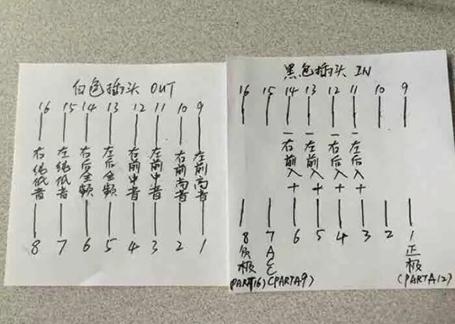 白色插头 OUT
16 15 14 13 12 11 10 9
右纯低音
左纯低音
右后全频
左后全频
右前中音
左前中音
右前高音
左前高音
8 7 6 5 4 3 2 1
黑色插头 IN
16 15 14 13 12 11 10 9
一右前入十
一左前入十
一右后入十
一左后入十
8 7 6 5 4 3 2 1
负极
ACC
正极
(PARTA9)
(PARTA12)